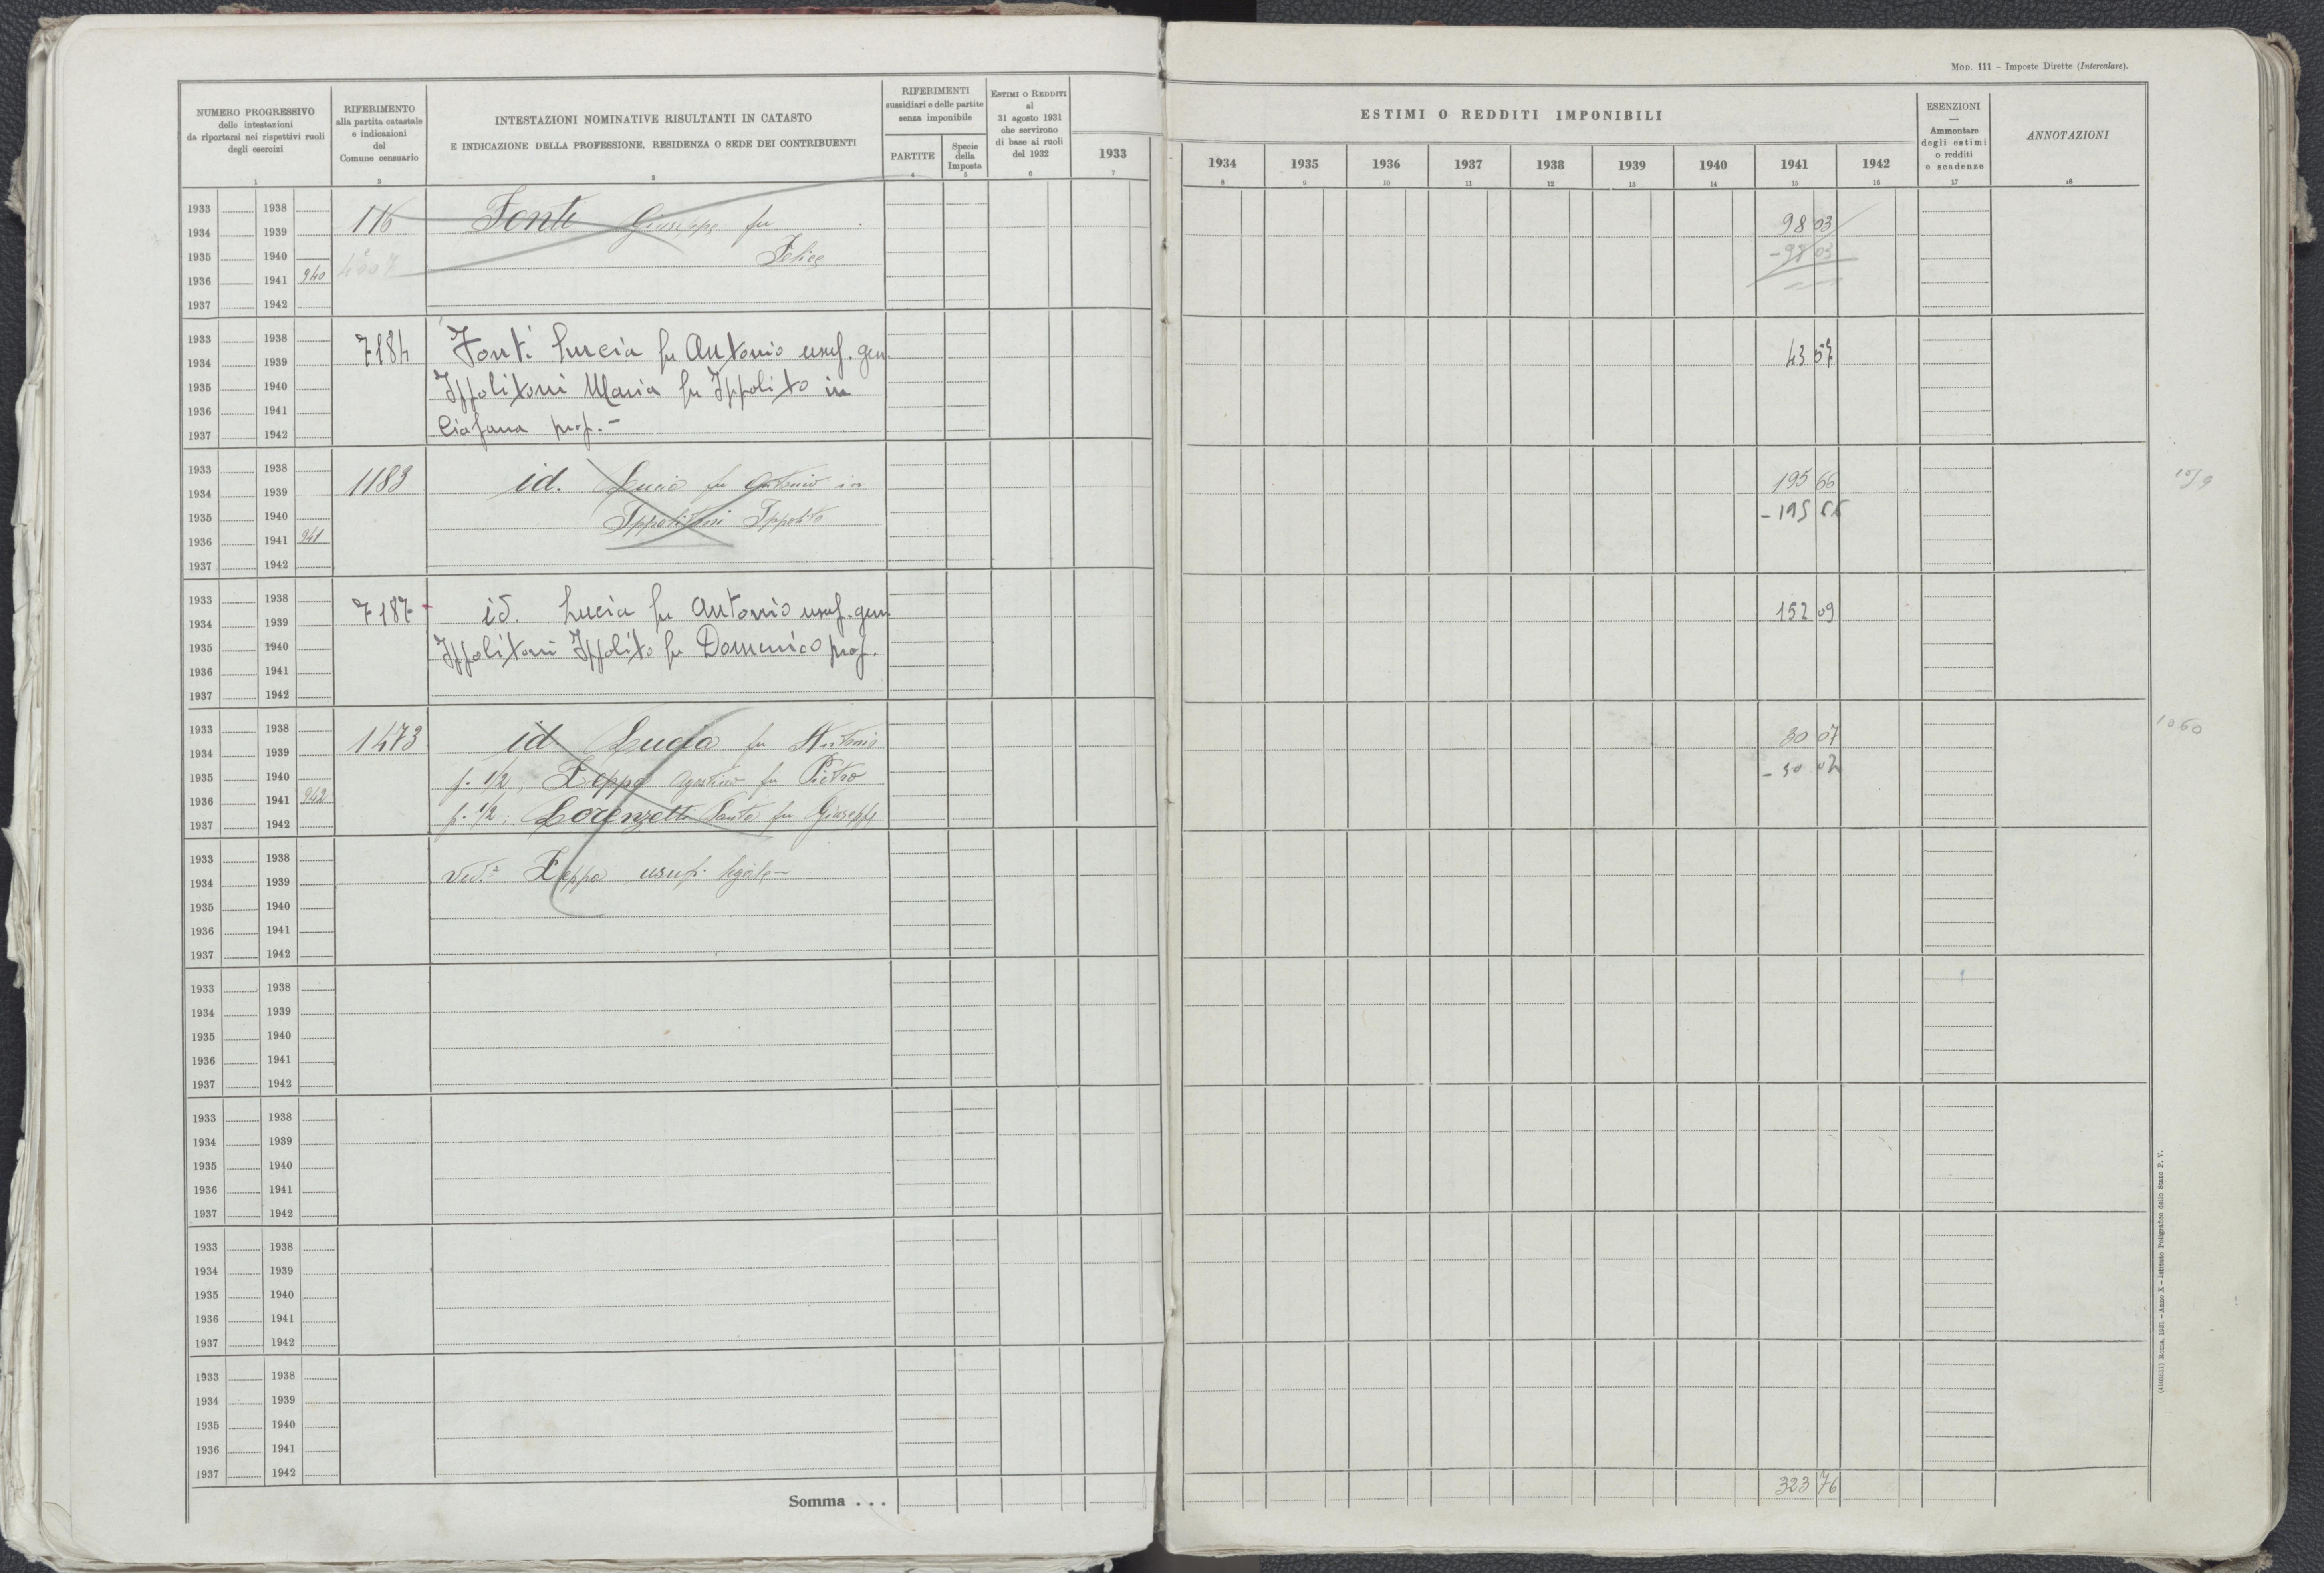 Mod. 111 - Imposte Dirette (Intercalare).
NUMERO PROGRESSIVO
delle intestazioni
da riportarsi nei rispettivi ruoli
degli esercizi
1
RIFERIMENTO
alla partita catastale
e indicazioni
del
Comune censuario
2
INTESTAZIONI NOMINATIVE RISULTANTI IN CATASTO
E INDICAZIONE DELLA PROFESSIONE, RESIDENZA O SEDE DEI CONTRIBUENTI
3
RIFERIMENTI
sussidiari e delle partite
senza imponibile
PARTITE
4
Specie
della
Imposta
5
ESTIMI O REDDITI
al
31 agosto 1931
che servirono
di base ai ruoli
del 1932
6
ESTIMI O REDDITI IMPONIBILI
1933 1934 1935 1936 1937 1938 1939 1940 1941 1942
7 8 9 10 11 12 13 14 15 16
ESENZIONI
Ammontare
degli estimi
o redditi
e scadenze
17
ANNOTAZIONI
18
1933 1938
1934 1939 116 Fonti Giuseppe fu 98 03
1935 1940 Felice - 98 03
1936 1941 940
1937 1942
1933 1938
1934 1939 7184 Fonti Lucia fu Antonio usuf. gen. 43 57
1935 1940 Ippolitoni Maria fu Ippolito in
1936 1941
1937 1942 Ciafana prop. -
1933 1938
1934 1939 1183 id. Lucia fu Antonio in 195 66
1935 1940 Ippolitoni Ippolito - 195 66
1936 1941 941
1937 1942
1933 1938
1934 1939 7187 id. Lucia fu Antonio usuf. gen. 152 09
1935 1940 Ippolitoni Ippolito fu Domenico prop.
1936 1941
1937 1942
1933 1938
1934 1939 1473 id Lucia fu Antonio 30 07
1935 1940 p. 1/2; Zeppa fu Pietro - 30 07
1936 1941 942
1937 1942 p. 1/2; Lorenzetti Santa fu Giuseppe
1933 1938
1934 1939 ved.a Zeppa usufr. legale -
1935 1940
1936 1941
1937 1942
1933 1938
1934 1939
1935 1940
1936 1941
1937 1942
1933 1938
1934 1939
1935 1940
1936 1941
1937 1942
1933 1938
1934 1939
1935 1940
1936 1941
1937 1942
1933 1938
1934 1939
1935 1940
1936 1941
1937 1942
Somma . . . 323 76
1060
Roma, 1931 - Anno X - Istituto Poligrafico dello Stato P. V.